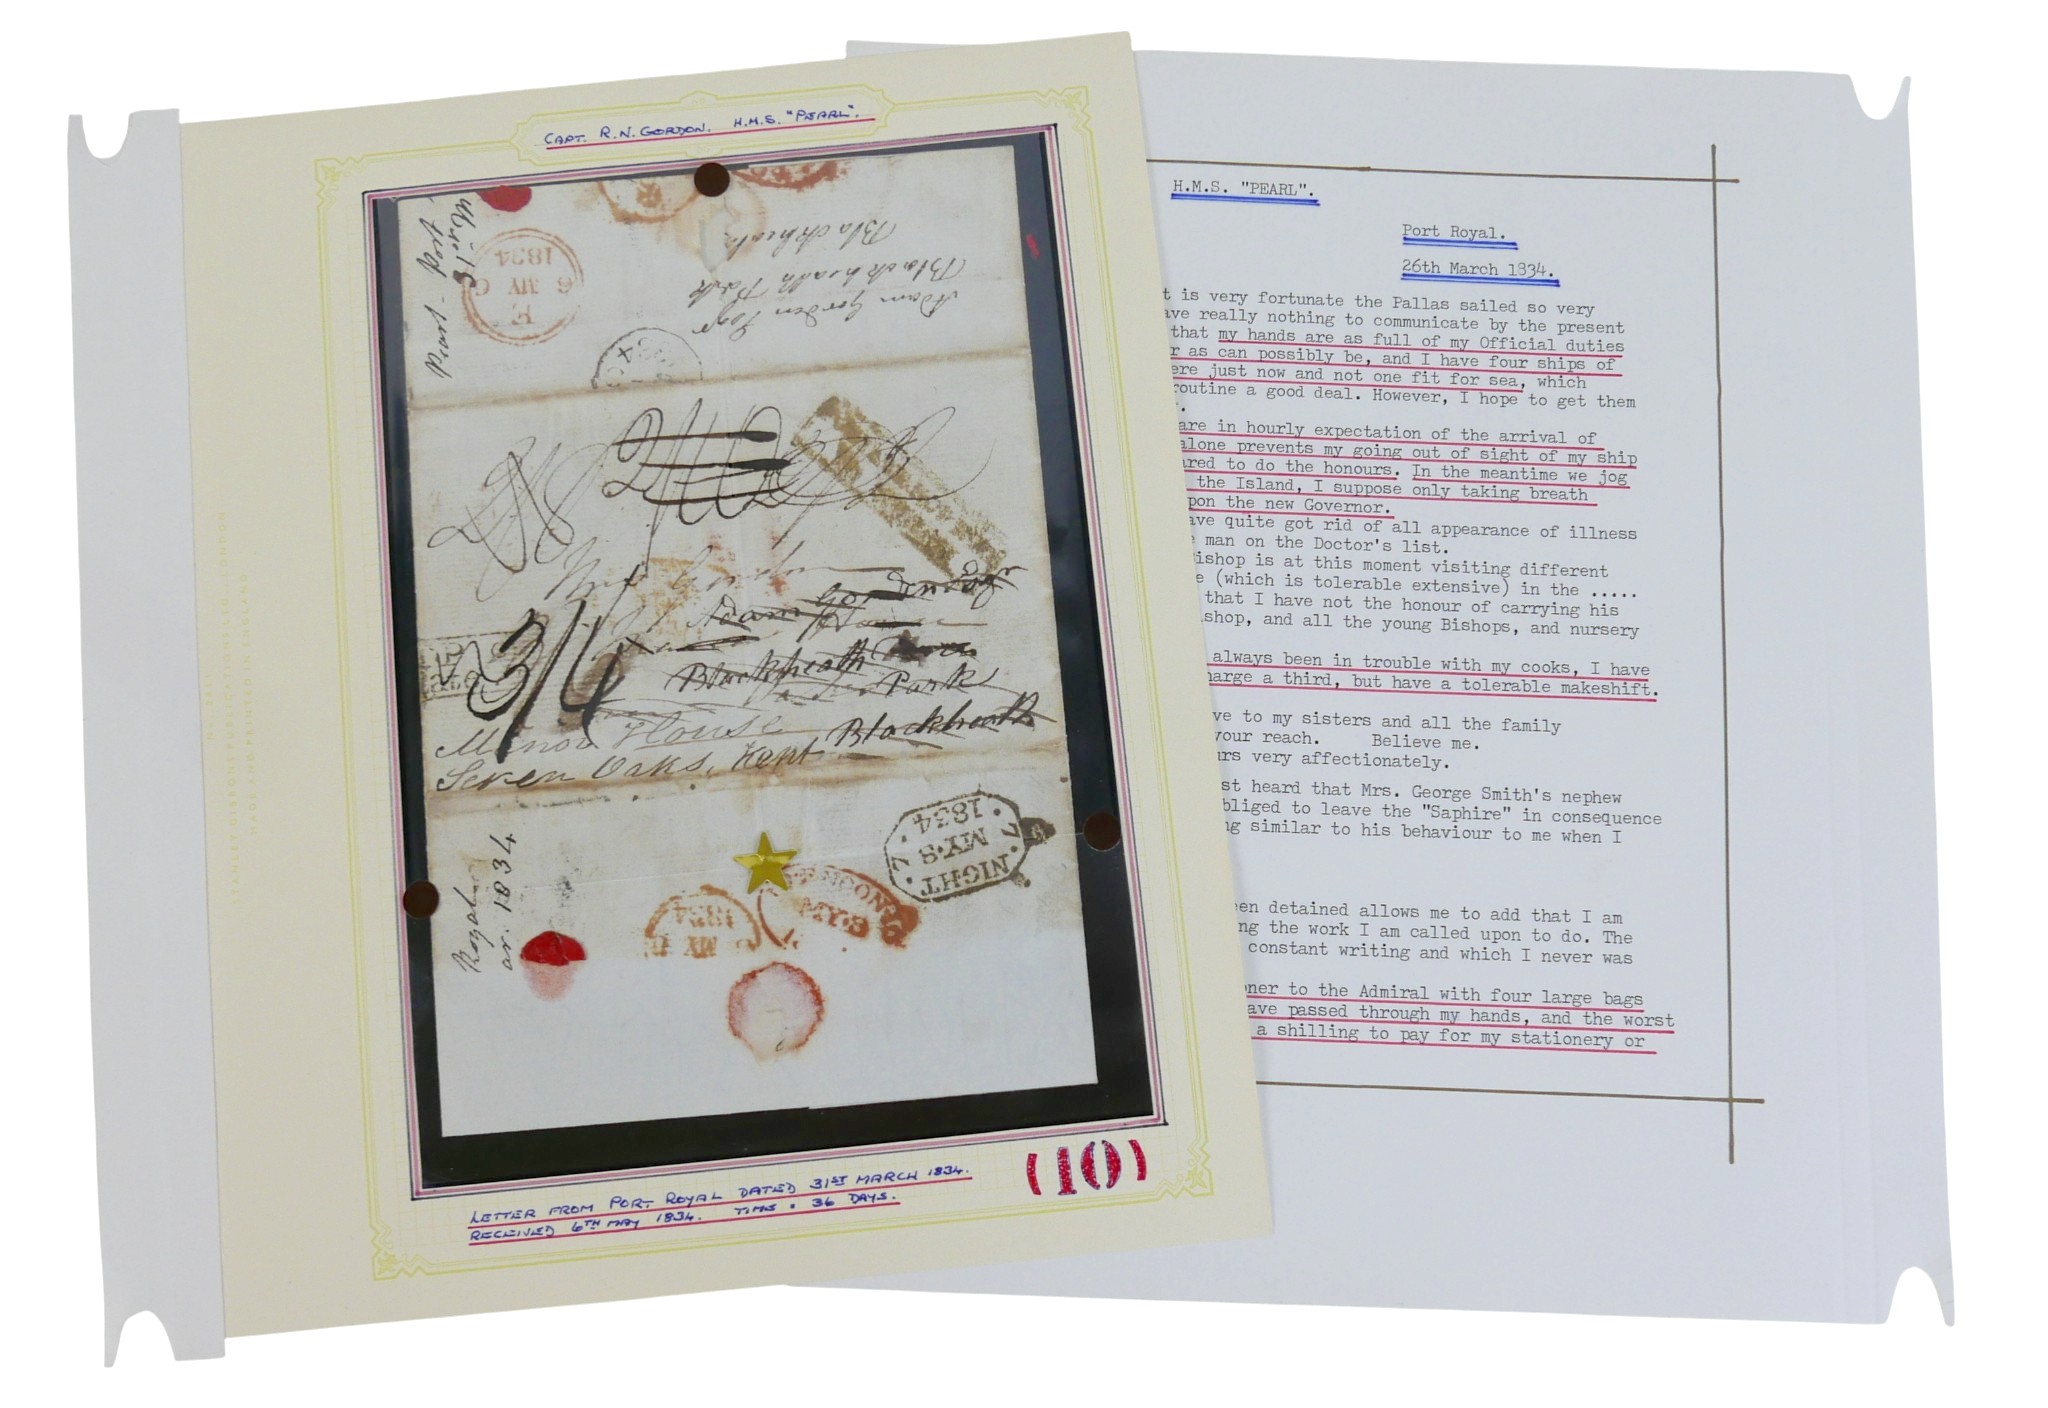 CAPT. R.N. GORDON. H.M.S. "PEARL".
Pearl - Port
31 Mar
F
6 MY 6
1834
Adam Gordon Esqr
Blackheath Park
Blackheath
Mrs Gordon
Adam Gordon Esqr
3/6
Blackheath
Park
Manor House Blackheath
Seven Oaks, Kent
NIGHT
7 . MY . 8 . 7
1834
Royal
ar. 1834
MY
1834
NOON
LETTER FROM PORT ROYAL DATED 31ST MARCH 1834.
RECEIVED 6TH MAY 1834. TIME = 36 DAYS.
(10)
STANLEY GIBBONS PUBLICATIONS LTD. LONDON
MADE AND PRINTED IN ENGLAND
H.M.S. "PEARL".
Port Royal.
26th March 1834.
t is very fortunate the Pallas sailed so very
ave really nothing to communicate by the present
that my hands are as full of my Official duties
r as can possibly be, and I have four ships of
ere just now and not one fit for sea, which
routine a good deal. However, I hope to get them
.
are in hourly expectation of the arrival of
alone prevents my going out of sight of my ship
ared to do the honours. In the meantime we jog
the Island, I suppose only taking breath
pon the new Governor.
ave quite got rid of all appearance of illness
e man on the Doctor's list.
Bishop is at this moment visiting different
e (which is tolerable extensive) in the .....
that I have not the honour of carrying his
ishop, and all the young Bishops, and nursery
always been in trouble with my cooks, I have
harge a third, but have a tolerable makeshift.
ve to my sisters and all the family
your reach. Believe me.
urs very affectionately.
st heard that Mrs. George Smith's nephew
bliged to leave the "Saphire" in consequence
ng similar to his behaviour to me when I
een detained allows me to add that I am
ng the work I am called upon to do. The
constant writing and which I never was
oner to the Admiral with four large bags
ave passed through my hands, and the worst
a shilling to pay for my stationery or